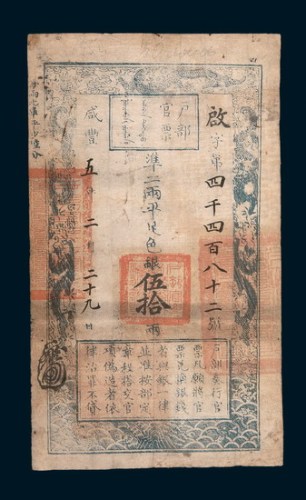 戶部
官票
啟字第四千四百八十二號
準二兩平足色銀伍拾兩
咸豐五年二月二十九日
戶部奏行官
票凡願將官
票兌換銀錢
者與銀一律
並准按部定
章程搭交官
項偽造者依
律治罪不貸